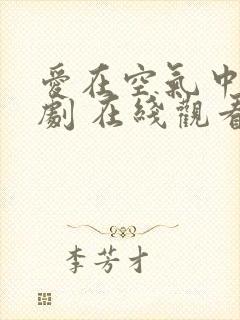 愛在空氣中
劇 在綫觀看
李芳才